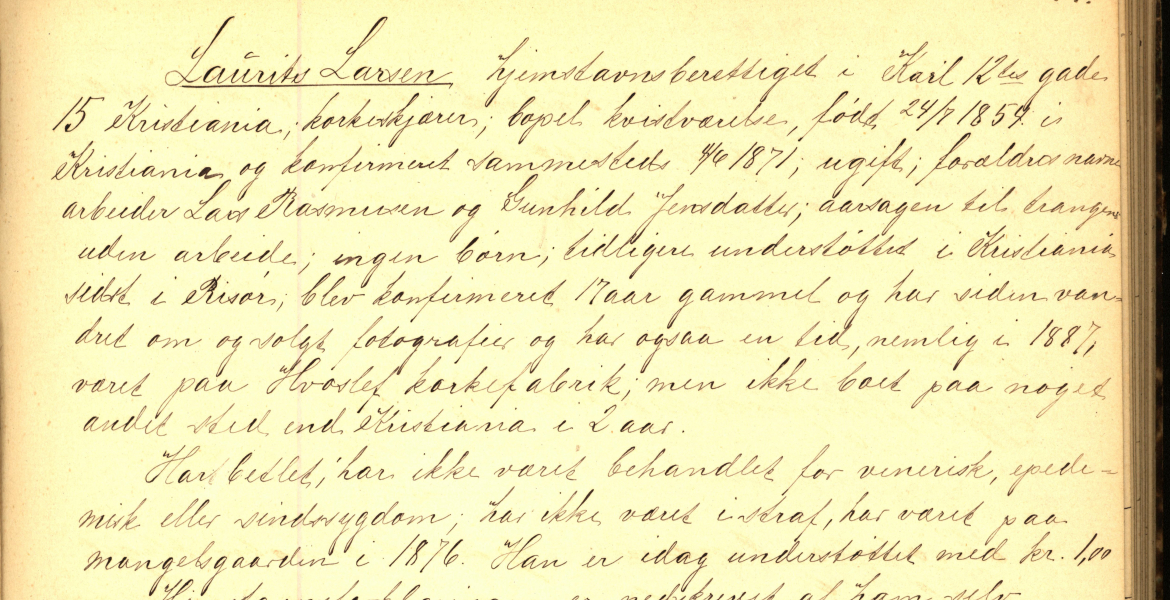 Laurits Larsen hjemstavnsberettiget i Karl 12tes gade
15 Kristiania; korkeskjærer; bopel kvistværelse, født 24/7 1854 i
Kristiania og konfirmeret sammesteds 4/6 1871; ugift; forældres navne
arbeider Lars Rasmusen og Gunhild Jensdatter; aarsagen til trangen
uden arbeide; ingen børn; tidligere understøttet i Kristiania
sidst i Risør; blev konfirmeret 17 aar gammel og har siden van-
dret om og solgt fotografier og har ogsaa en tid, nemlig i 1887,
været paa Hvoslef korkefabrik; men ikke boet paa noget
andet sted end Kristiania i 2 aar.
Har betlet; har ikke været behandlet for venerisk, epede-
misk eller sindssygdom; har ikke været i straf, har været paa
mangelsgaarden i 1876. Han er idag understøttet med kr. 1,00
er nedskrevet af ham selv